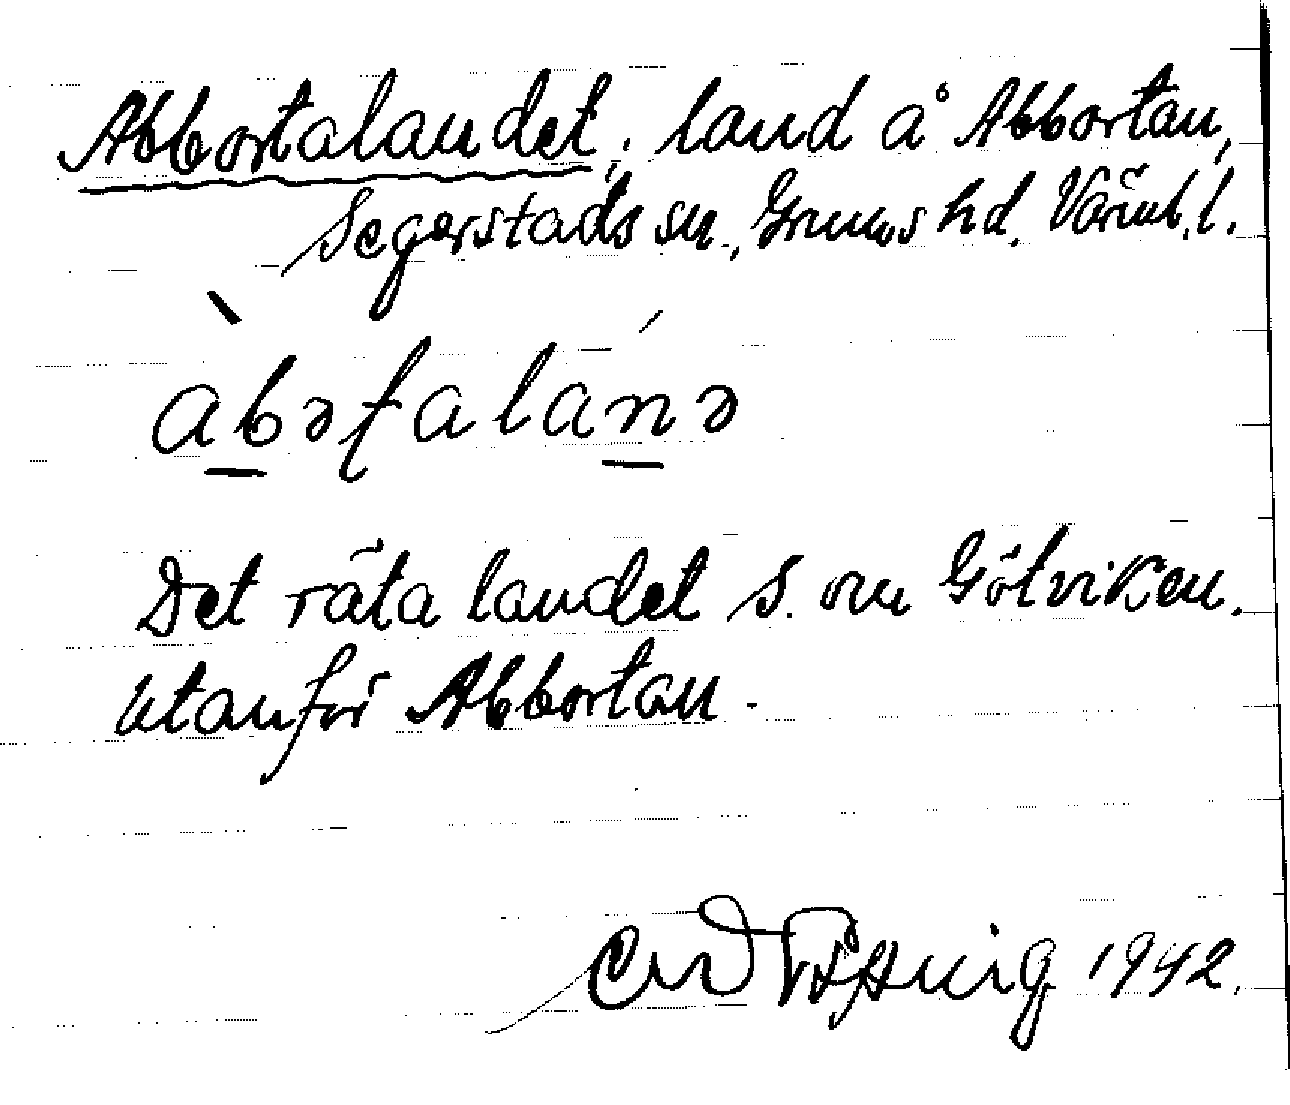 Abbortalandet, land å Abbortan,
Segerstads sn., Grums hd. Värml. l.
àbəfalánə
Det räta landet S. om Götviken.
utanför Abbortan.
1942.